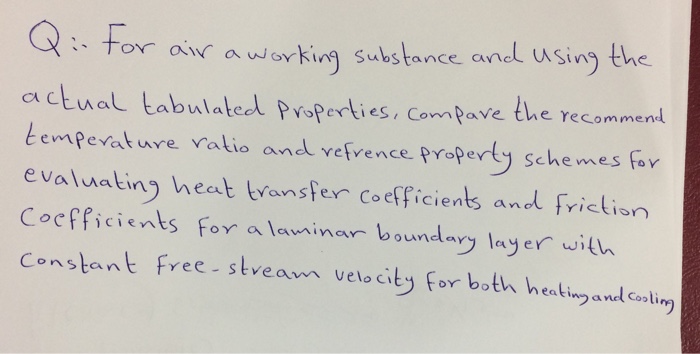 Q:. For air a working substance and using the
actual tabulated properties, compare the recommend
temperature ratio and refrence property schemes for
evaluating heat transfer coefficients and friction
Coefficients for a laminar boundary layer with
Constant free-stream velocity for both heating and cooling